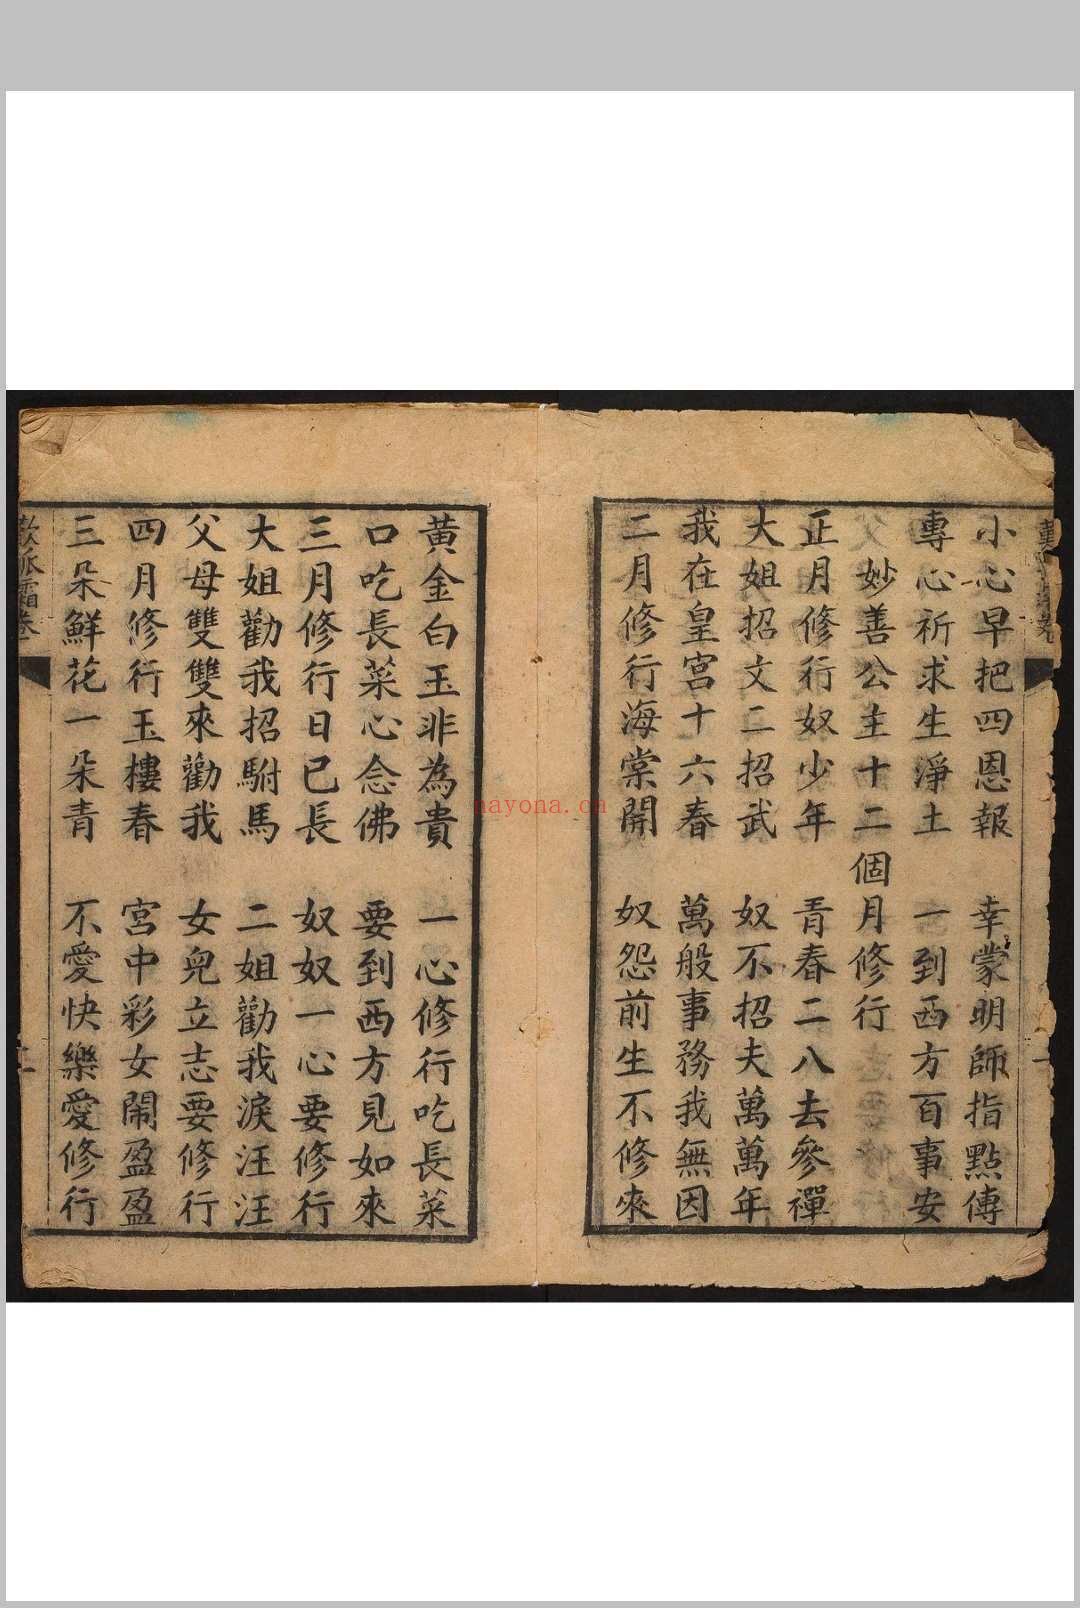 小心早把四恩報 幸蒙明師指點傳
專心祈求生淨土 一到西方百事安
妙善公主十二個月修行
正月修行奴少年 青春二八去參禪
大姐招文二招武 奴不招夫萬萬年
我在皇宮十六春 萬般事務我無因
二月修行海棠開 奴怨前生不修來
黃金白玉非為貴 一心修行吃長菜
口吃長菜心念佛 要到西方見如來
三月修行日已長 奴奴一心要修行
大姐勸我招駙馬 二姐勸我淚汪汪
父母雙雙來勸我 女兒立志要修行
四月修行玉樓春 宮中彩女鬧盈盈
三朵鮮花一朵青 不愛快樂愛修行
霜卷
nayona.cn